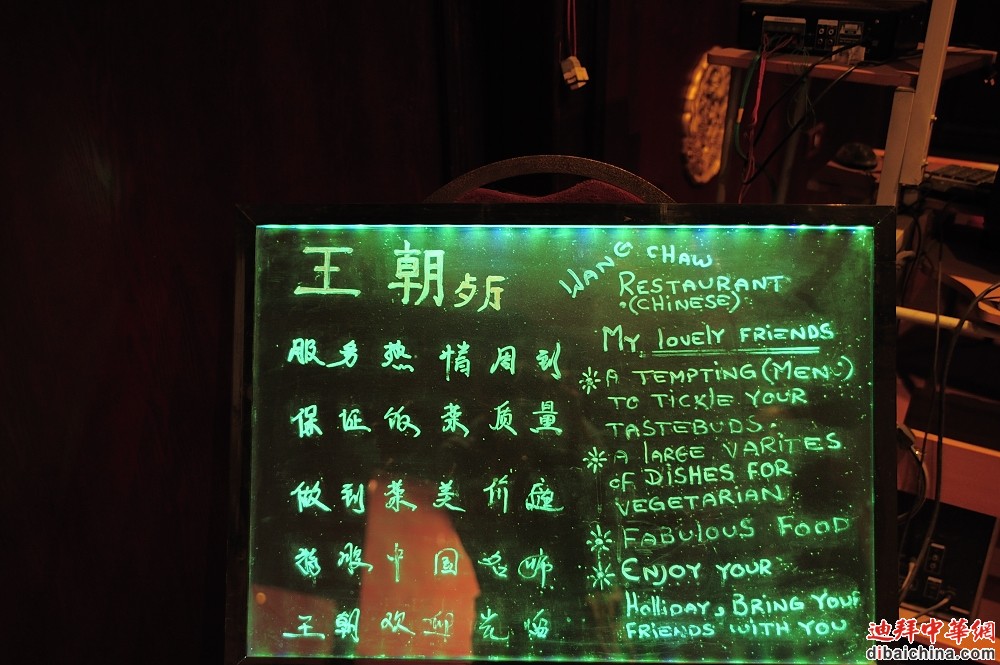 王朝
服务热情周到
保证饭菜质量
做到菜美价
中国名师
王朝欢迎光临
WANG CHAW
RESTAURANT
(CHINESE)
MY LOVELY FRIENDS
A TEMPTING (MENU)
TO TICKLE YOUR
TASTEBUDS.
A LARGE VARITES
OF DISHES FOR
VEGETARIAN
FABULOUS FOOD
ENJOY YOUR
HOLLIDAY, BRING YOUR
FRIENDS WITH YOU
迪拜中華網
dibaichina.com